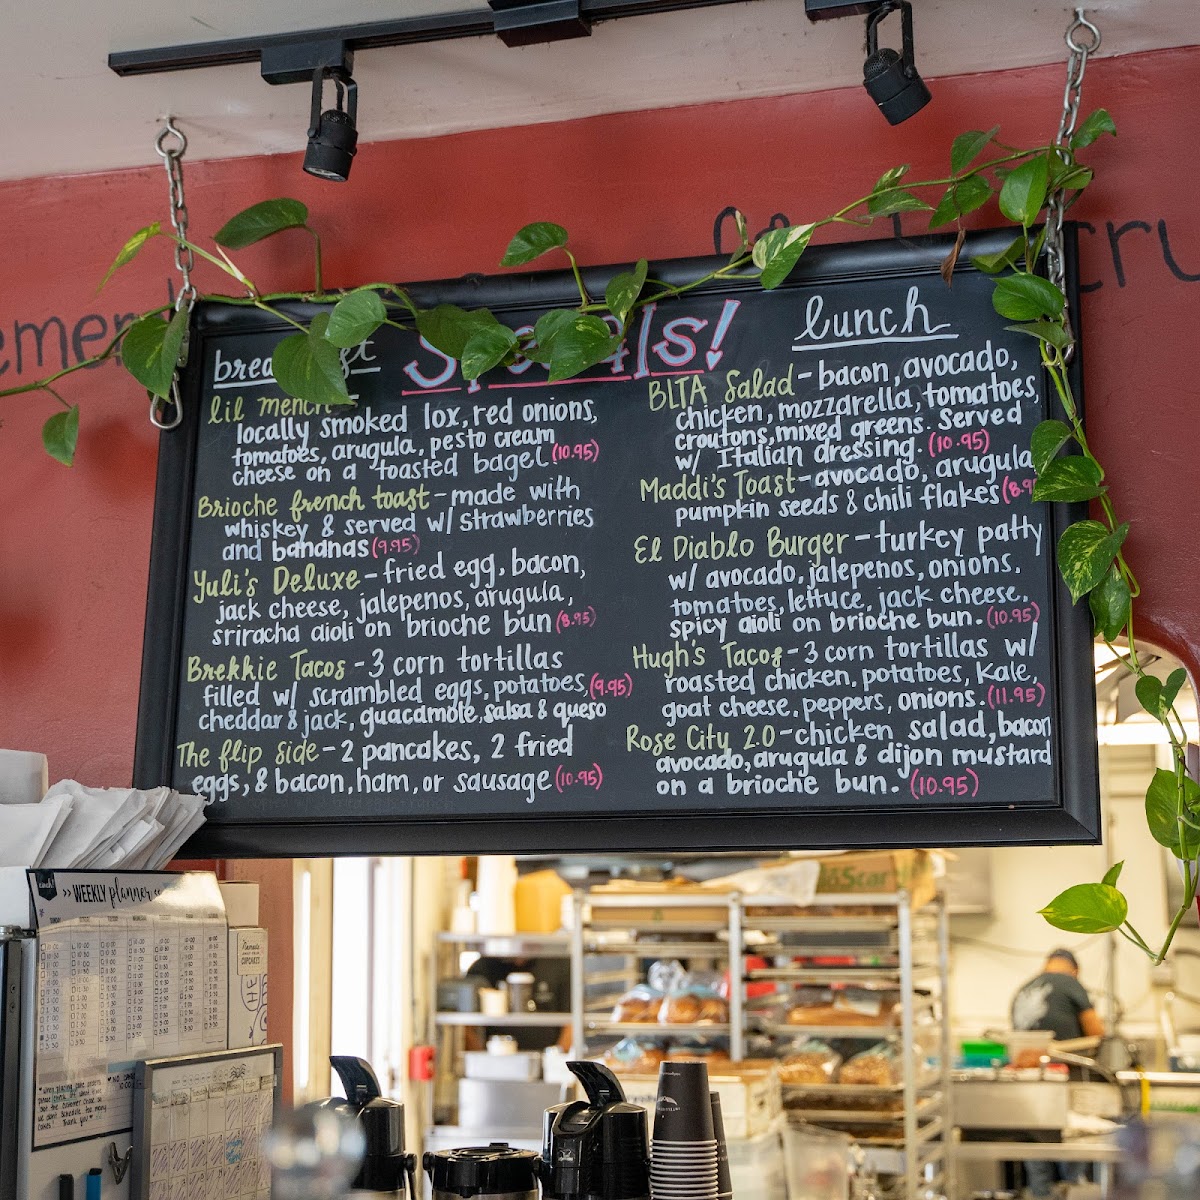 Specials!
breakfast
lil mench -
locally smoked lox, red onions,
tomatoes, arugula, pesto cream
cheese on a toasted bagel (10.95)
Brioche french toast - made with
whiskey & served w/ strawberries
and bananas (9.95)
Yuli's Deluxe - fried egg, bacon,
jack cheese, jalepenos, arugula,
sriracha aioli on brioche bun (8.95)
Brekkie Tacos - 3 corn tortillas
filled w/ scrambled eggs, potatoes, (9.95)
cheddar & jack, guacamole, salsa & queso
The flip side - 2 pancakes, 2 fried
eggs, & bacon, ham, or sausage (10.95)
lunch
BLTA Salad - bacon, avocado,
chicken, mozzarella, tomatoes,
croutons, mixed greens. Served
w/ Italian dressing. (10.95)
Maddi's Toast - avocado, arugula
pumpkin seeds & chili flakes
El Diablo Burger - turkey patty
w/ avocado, jalepenos, onions,
tomatoes, lettuce, jack cheese,
spicy aioli on brioche bun. (10.95)
Hugh's Tacos - 3 corn tortillas w/
roasted chicken, potatoes, kale,
goat cheese, peppers, onions. (11.95)
Rose City 2.0 - chicken salad, bacon
avocado, arugula & dijon mustard
on a brioche bun. (10.95)
>> WEEKLY planner